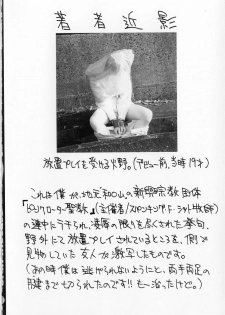 著者近影
放置プレイを受ける火野。(デビュー前、当時19才)
これは僕が、地元和歌山の新興宗教団体
「ピンクローター聖教。」(主催者/スパンキング・F・シャト牧師)
の連中にラチられ、凌辱の限りを尽くされた挙句、
野外にて放置プレイされているところを、側で
見物していた友人が激写したものです。
(あの時僕は逃げられないようにと、両手両足の
腱まで切られたのです!!も〜治ったけど。)